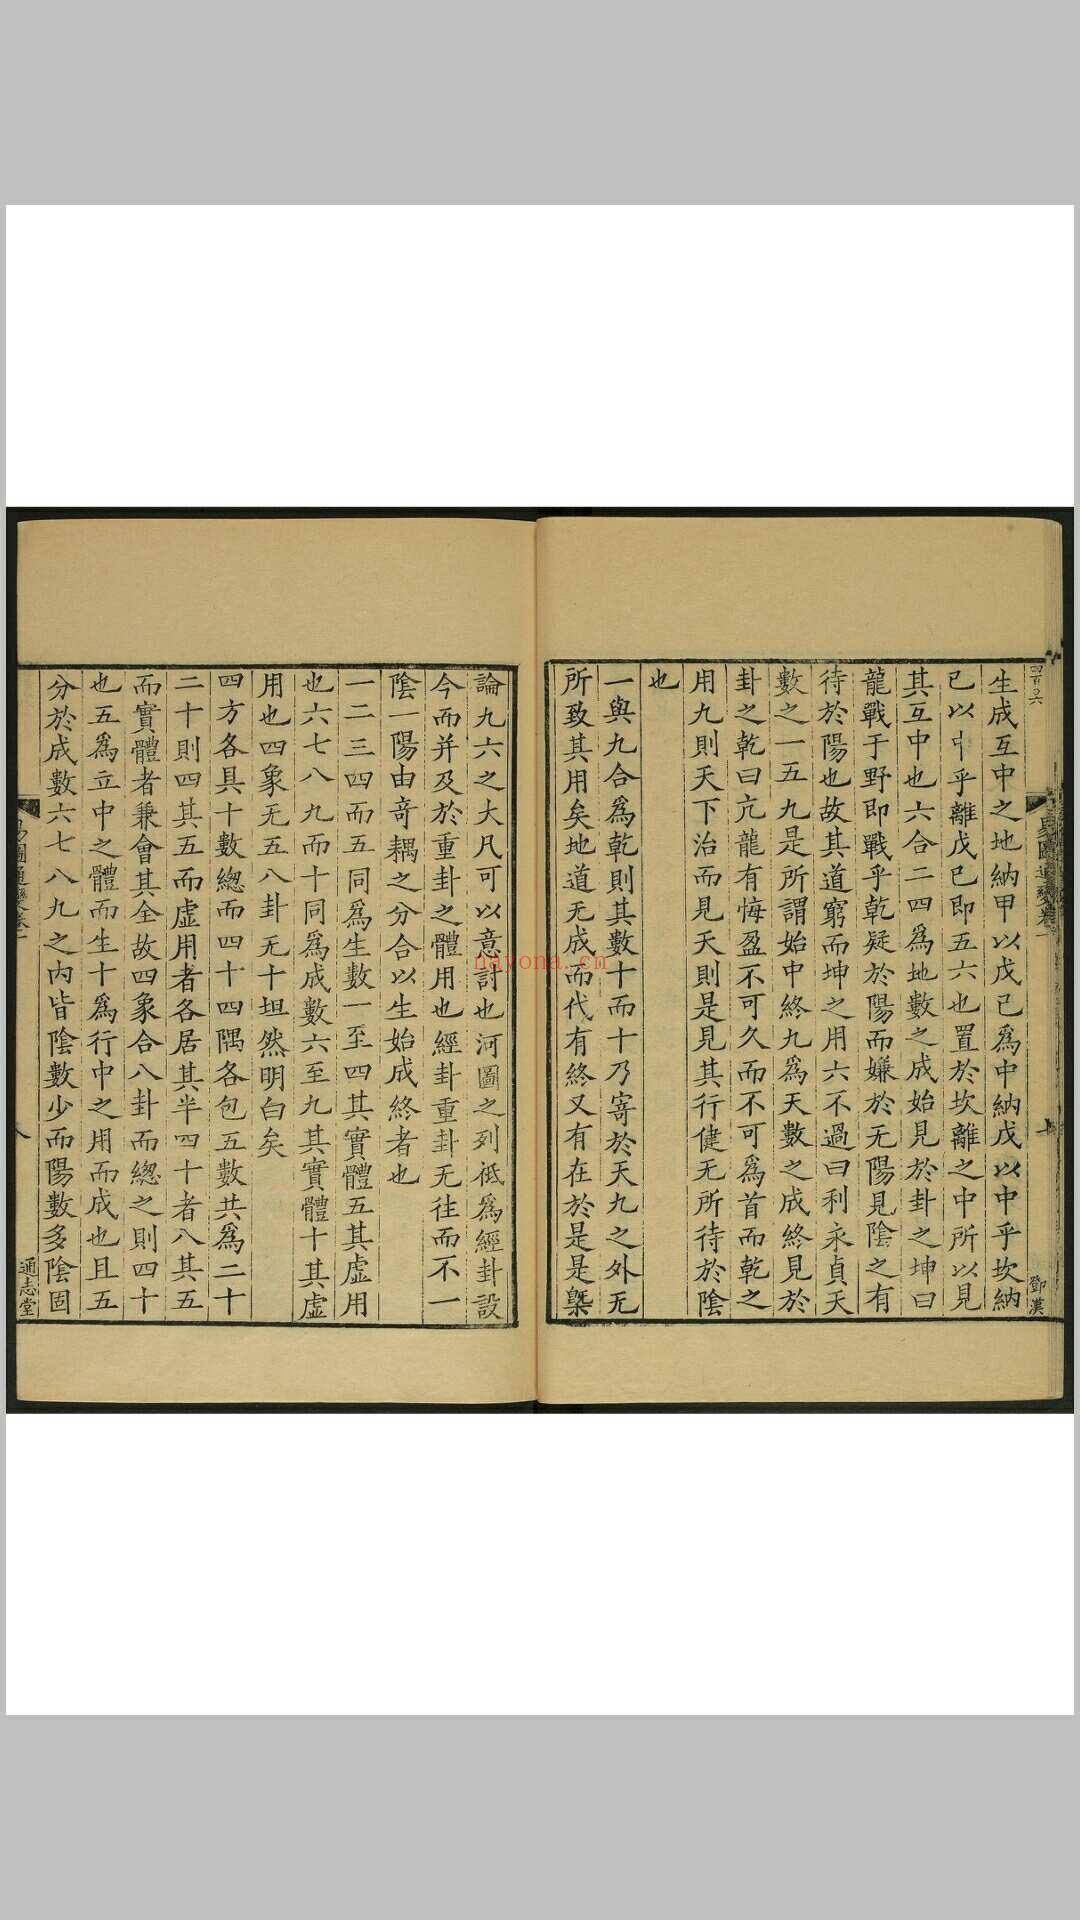 生成互中之地納甲以戊己爲中納戊以中乎坎納
己以中乎離戊己即五六也置於坎離之中所以見
其互中也六合二四爲地數之成始見於卦之坤曰
龍戰于野即戰乎乾疑於陽而嫌於无陽見陰之有
待於陽也故其道窮而坤之用六不過曰利永貞天
數之一五九是所謂始中終九爲天數之成終見於
卦之乾曰亢龍有悔盈不可久而不可爲首而乾之
用九則天下治而見天則是見其行健无所待於陰
也
一與九合爲乾則其數十而十乃寄於天九之外无
所致其用矣地道无成而代有終又有在於是是槩
鄧漢
論九六之大凡可以意討也河圖之列祗爲經卦設
今而并及於重卦之體用也經卦重卦无往而不一
陰一陽由竒耦之分合以生始成終者也
一二三四而五同爲生數一至四其實體五其虛用
也六七八九而十同爲成數六至九其實體十其虛
用也四象无五八卦无十坦然明白矣
四方各具十數緫而四十四隅各包五數共爲二十
二十則四其五而虛用者各居其半四十者八其五
而實體者兼會其全故四象合八卦而緫之則四十
也五爲立中之體而生十爲行中之用而成也且五
分於成數六七八九之內皆陰數少而陽數多陰固
易圖通變卷一
八
通志堂
nayona.cn